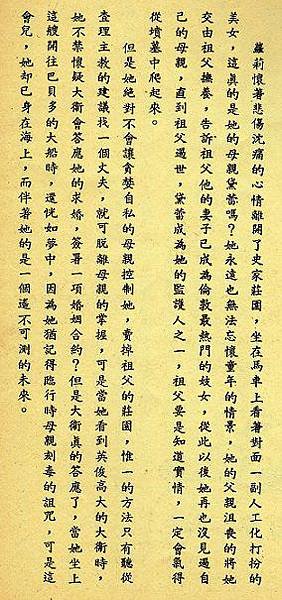 蘿莉懷著悲傷沈痛的心情離開了史家莊園，坐在馬車上看著對面一副人工化打扮的
美女，這真的是她的母親黛蕾嗎？她永遠也無法忘懷童年的情景，她的父親沮喪的將她
交由祖父撫養，告訴祖父他的妻子已成為倫敦最熱門的妓女，從此以後她再也沒見過自
己的母親，直到祖父過世，黛蕾成為她的監護人之一，祖父要是知道實情，一定會氣得
從墳墓中爬起來。
但是她絕對不會讓貪婪自私的母親控制她，賣掉祖父的莊園，惟一的方法只有聽從
查理主教的建議找一個丈夫，就可脫離母親的掌握，可是當她看到英俊高大的大衛時，
她不禁懷疑大衛會答應她的求婚，簽署一項婚姻合約？但是大衛真的答應了，當她坐上
這艘開往巴貝多的大船時，還恍如夢中，因為她猶記得臨行時母親刻毒的詛咒，可是這
會兒，她却已身在海上，而伴著她的是一個遙不可測的未來。